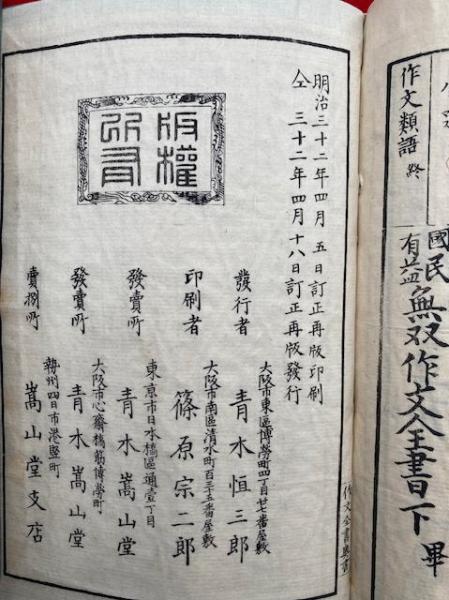 作文類語 終
國民
有益
無双作文全書下 畢
版權
所有
明治三十二年四月 五日訂正再版印刷
仝 三十二年四月十八日訂正再版發行
大阪市東區博勞町四丁目廿七番屋敷
發行者 青木恒三郎
大阪市南區清水町百三十五番屋敷
印刷者 篠原宗二郎
東京市日本橋區通壹丁目
發賣所 青木嵩山堂
大阪市心齋橋筋博勞町
發賣所 青木嵩山堂
勢州四日市港竪町
賣捌所 嵩山堂支店
作文全書